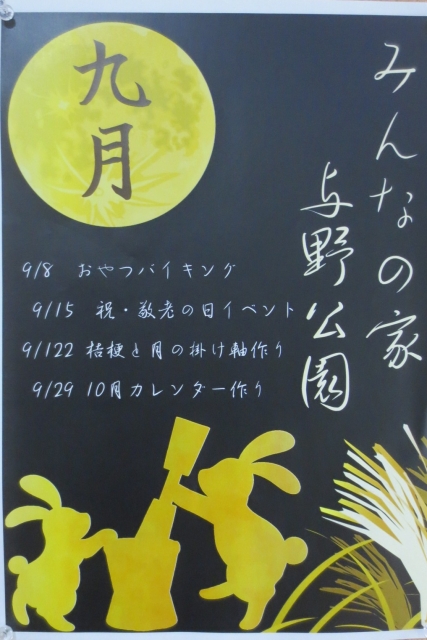 みんなの家
与野公園
九月
9/8 おやつバイキング
9/15 祝・敬老の日イベント
9/122 桔梗と月の掛け軸作り
9/29 10月カレンダー作り